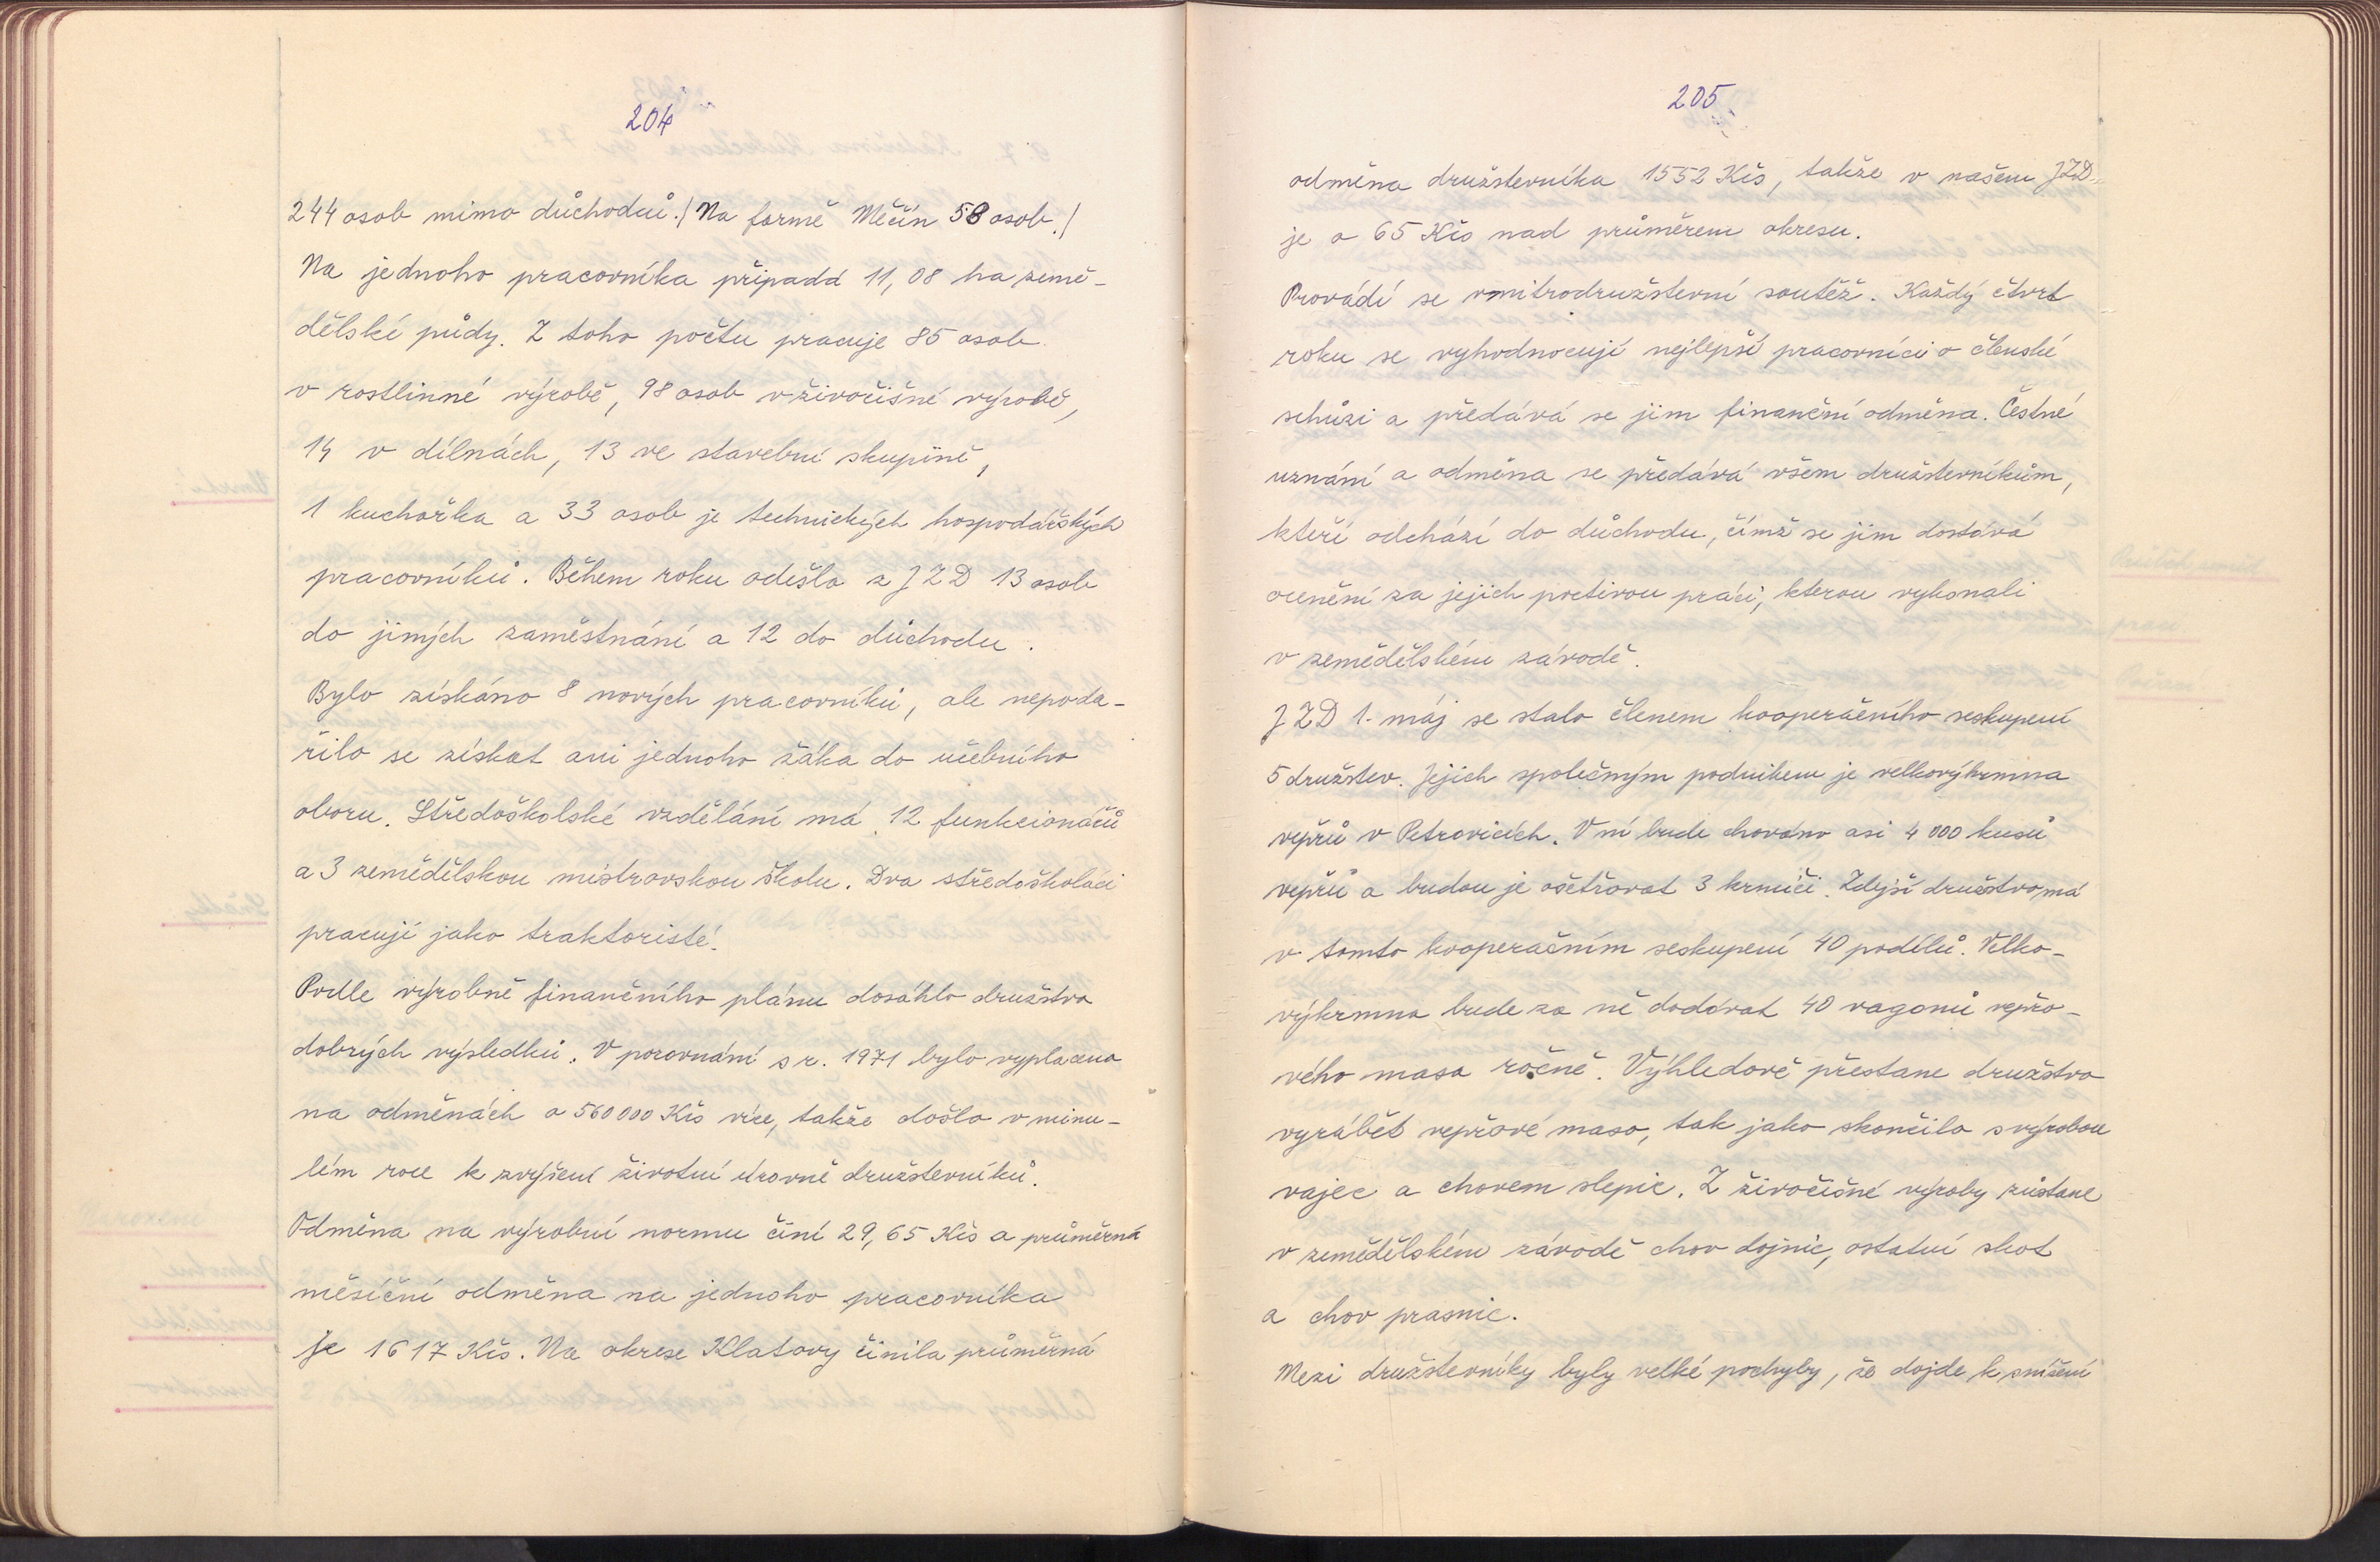 204
244 osob mimo důchodců./Na farmě Měčín 58 osob./
Na jednoho pracovníka připadá 11,08 ha země-
dělské půdy. Z toho počtu pracuje 85 osob
v rostlinné výrobě, 98 osob v živočišné výrobě,
14 v dílnách, 13 ve stavební skupině,
1 kuchařka a 33 osob je technických hospodářských
pracovníků. Během roku odešlo z JZD 13 osob
do jiných zaměstnání a 12 do důchodu.
Bylo získáno 8 nových pracovníků, ale nepoda-
řilo se získat ani jednoho žáka do učebního
oboru. Středoškolské vzdělání má 12 funkcionářů
a 3 zemědělskou mistrovskou školu. Dva středoškoláci
pracují jako traktoristé.
Podle výrobně finančního plánu dosáhlo družstvo
dobrých výsledků. V porovnání s r. 1971 bylo vyplaceno
na odměnách o 560 000 Kčs více, takže došlo v minu-
lém roce k zvýšení životní úrovně družstevníků.
Odměna na výrobní normu činí 29,65 Kčs a průměrná
měsíční odměna na jednoho pracovníka
je 1617 Kčs. Na okrese Klatovy činila průměrná
205
odměna družstevníka 1552 Kčs, takže v našem JZD
je o 65 Kčs nad průměrem okresu.
Provádí se vnitrodružstevní soutěž. Každý čtvrt
roku se vyhodnocují nejlepší pracovníci o členské
schůzi a předává se jim finanční odměna. Čestné
uznání a odměna se předává všem družstevníkům,
kteří odchází do důchodu, čímž se jim dostává
ocenění za jejich poctivou práci, kterou vykonali
v zemědělském závodě.
JZD 1. máj se stalo členem kooperačního seskupení
5 družstev. Jejich společným podnikem je velkovýkrmna
vepřů v Petrovicích. V ní bude chováno asi 4 000 kusů
vepřů a budou je ošetřovat 3 krmiči. Zdejší družstvo má
v tomto kooperačním seskupení 40 podílů. Velko-
výkrmna bude za ně dodávat 40 vagonů vepřo-
vého masa ročně. Výhledově přestane družstvo
vyrábět vepřové maso, tak jako skončilo s výrobou
vajec a chovem slepic. Z živočišné výroby zůstane
v zemědělském závodě chov dojnic, ostatní skot
a chov prasnic.
Mezi družstevníky byly velké pochyby, že dojde k snížení